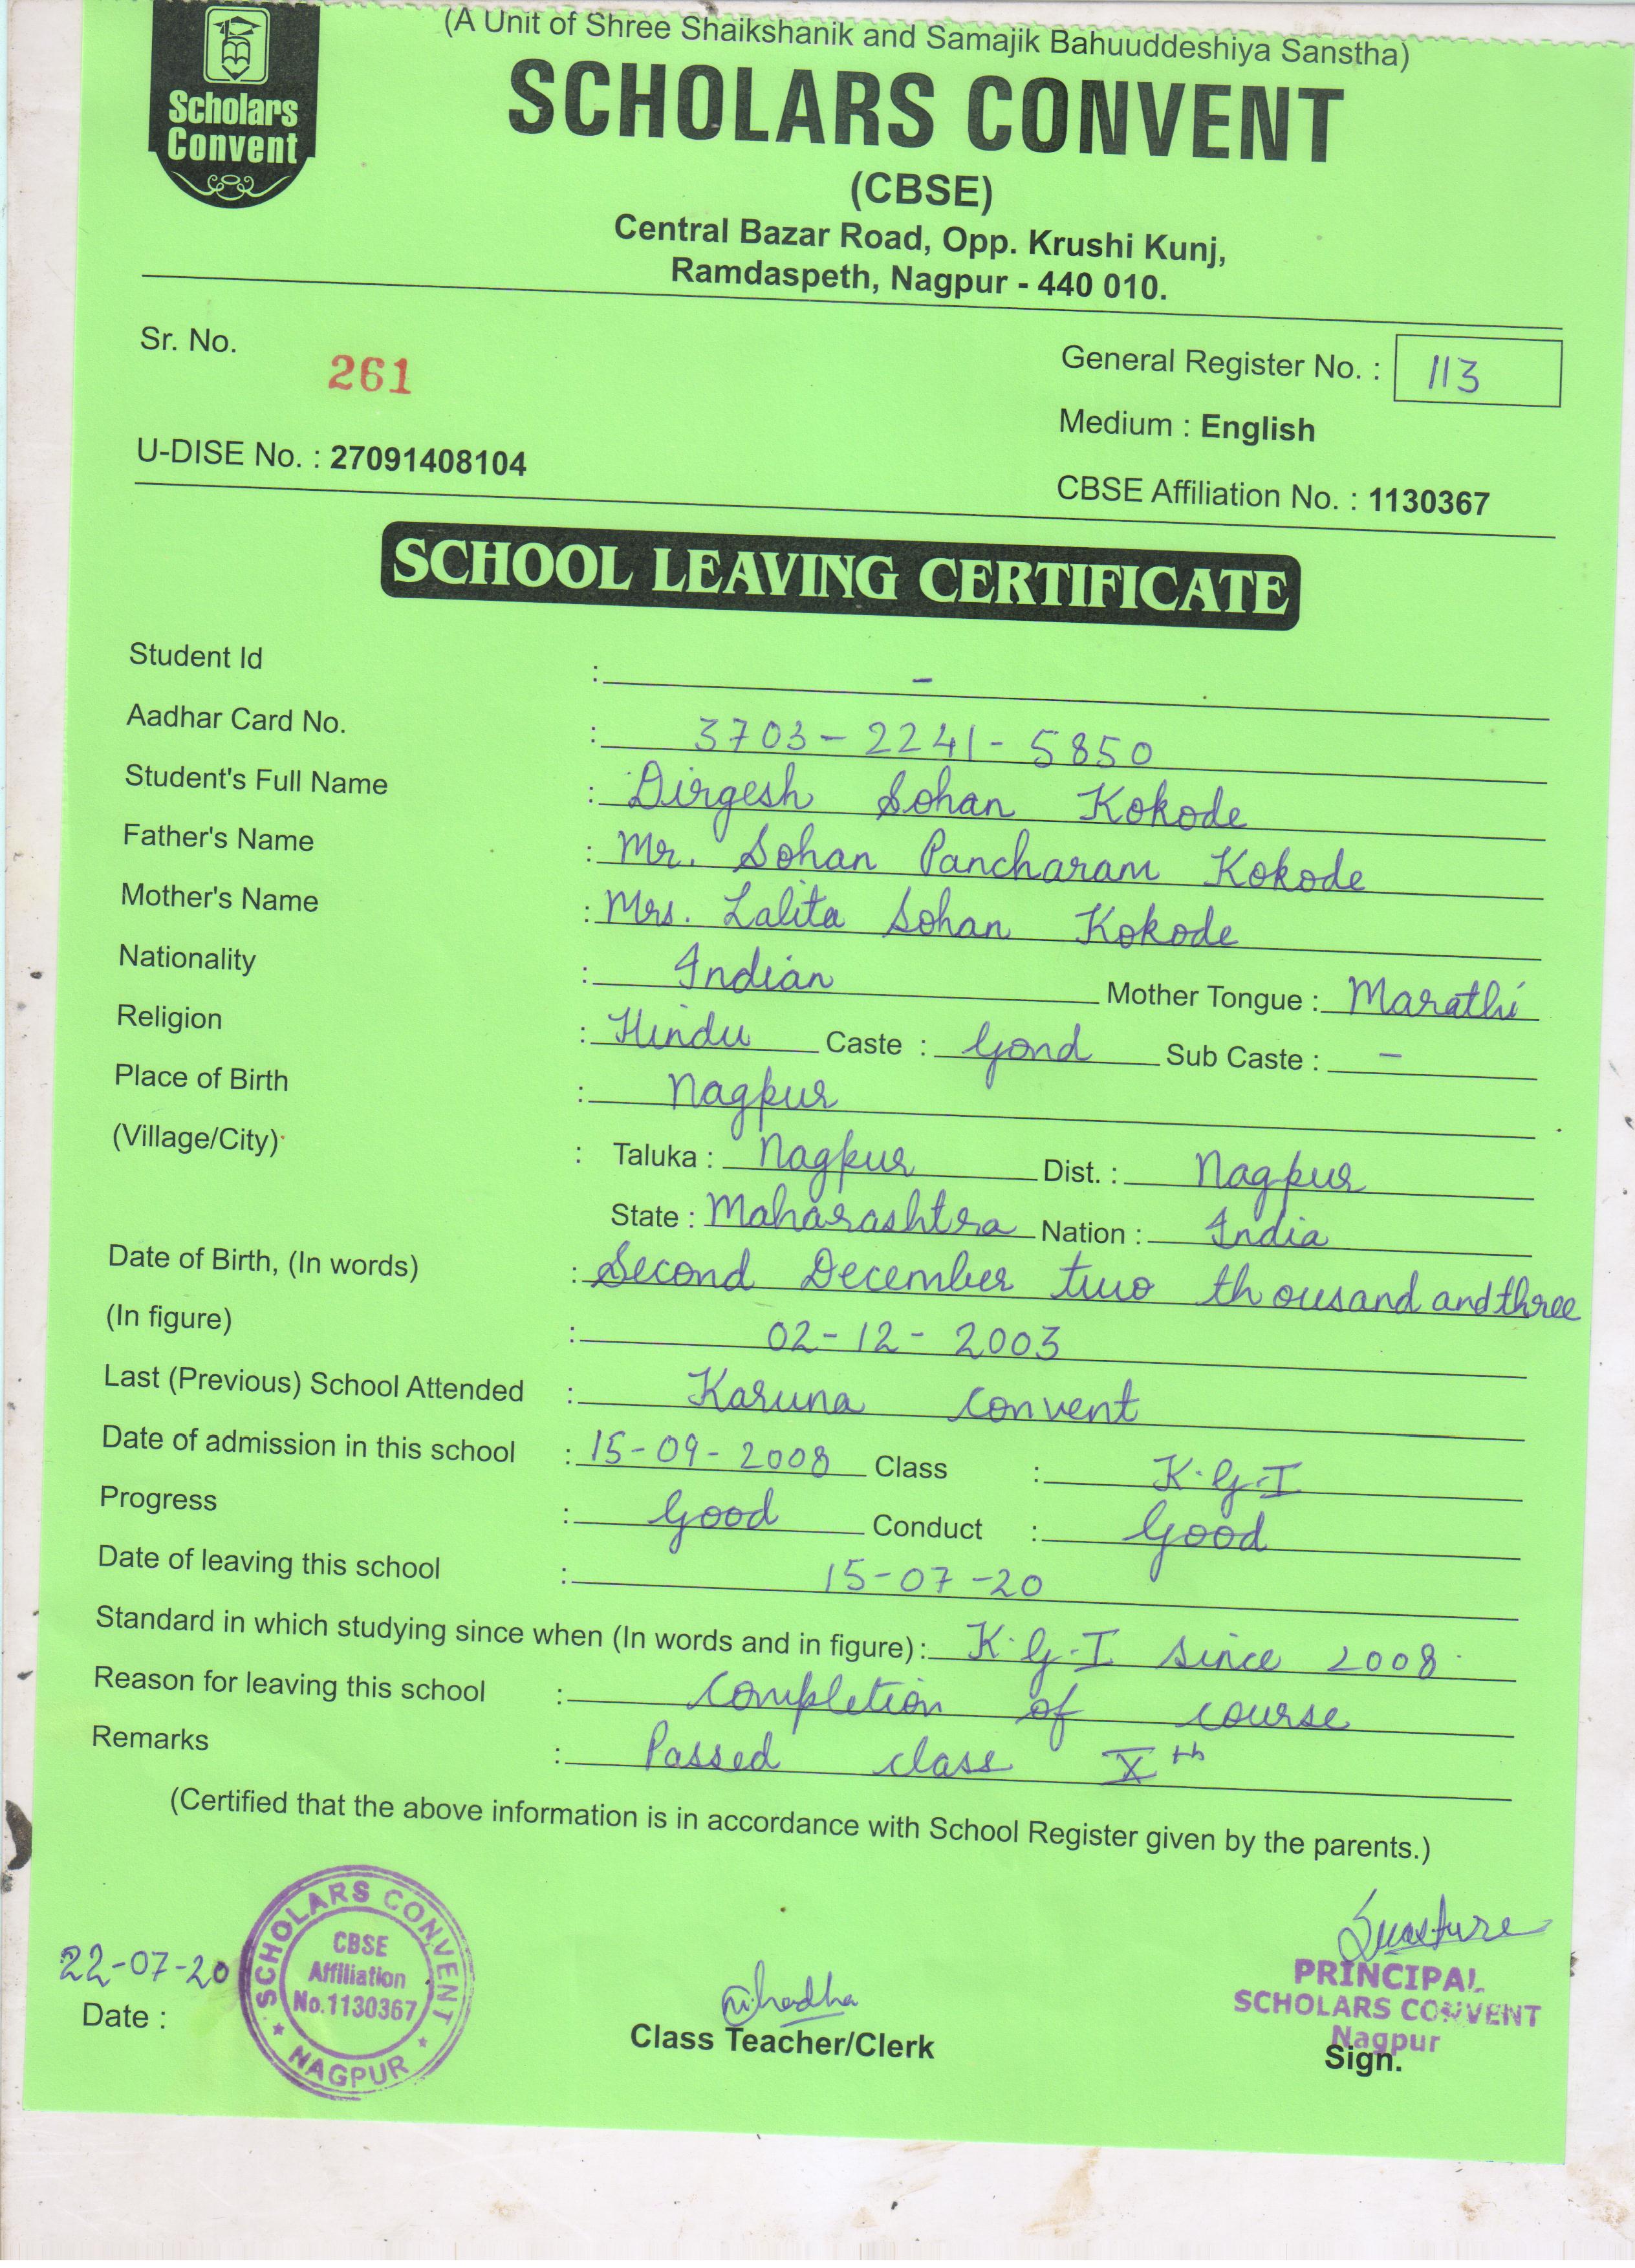 (A Unit of Shree Shaikshanik and Samajik Bahuuddeshiya Sanstha)
Scholars
Convent
SCHOLARS CONVENT
(CBSE)
Central Bazar Road, Opp. Krushi Kunj,
Ramdaspeth, Nagpur - 440 010.
Sr. No. 261
General Register No. : 113
Medium : English
U-DISE No. : 27091408104
CBSE Affiliation No. : 1130367
SCHOOL LEAVING CERTIFICATE
Student Id : -
Aadhar Card No. : 3703-2241-5850
Student's Full Name : Dirgesh Sohan Kokode
Father's Name : Mr. Sohan Pancharam Kokode
Mother's Name : Mrs. Lalita Sohan Kokode
Nationality : Indian Mother Tongue : Marathi
Religion : Hindu Caste : Gond Sub Caste : -
Place of Birth : Nagpur
(Village/City) : Taluka : Nagpur Dist. : Nagpur
State : Maharashtra Nation : India
Date of Birth, (In words) : Second December two thousand and three
(In figure) : 02-12-2003
Last (Previous) School Attended : Karuna convent
Date of admission in this school : 15-09-2008 Class : K.G-I
Progress : Good Conduct : Good
Date of leaving this school : 15-07-20
Standard in which studying since when (In words and in figure) : K.G-I since 2008
Reason for leaving this school : completion of course
Remarks : Passed class Xth
(Certified that the above information is in accordance with School Register given by the parents.)
22-07-20
Date :
SCHOLARS CONVENT
CBSE
Affiliation
No.1130367
NAGPUR
Class Teacher/Clerk
PRINCIPAL
SCHOLARS CONVENT
Nagpur
Sign.